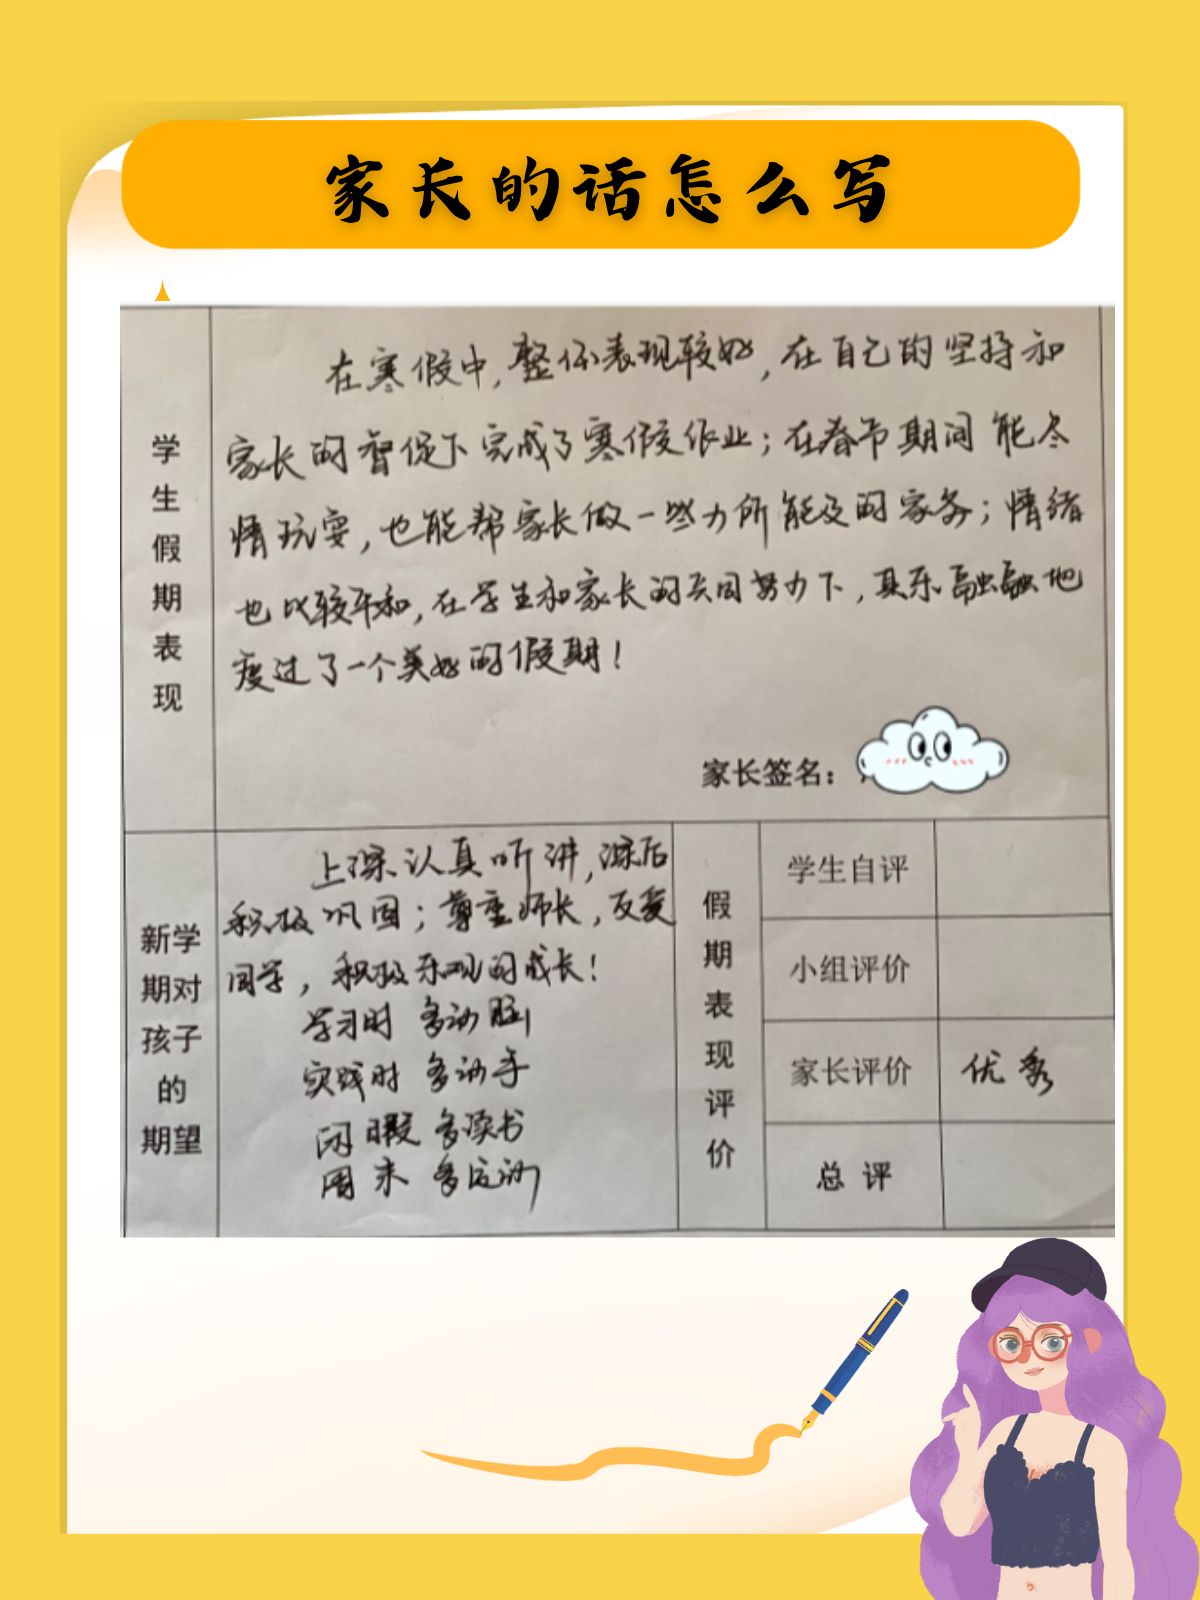 家长的话怎么写
学生假期表现
在寒假中,整体表现较好,在自己的坚持和
家长的督促下完成了寒假作业;在春节期间能尽
情玩耍,也能帮家长做一些力所能及的家务;情绪
也比较平和,在学生和家长的共同努力下,其乐融融地
度过了一个美好的假期!
家长签名:
新学期对孩子的期望
上课认真听讲,课后
积极巩固;尊重师长,友爱
同学,积极乐观的成长!
学习时 多动脑
实践时 多动手
闲暇 多读书
周末 多运动
假期表现评价
学生自评
小组评价
家长评价 优秀
总评